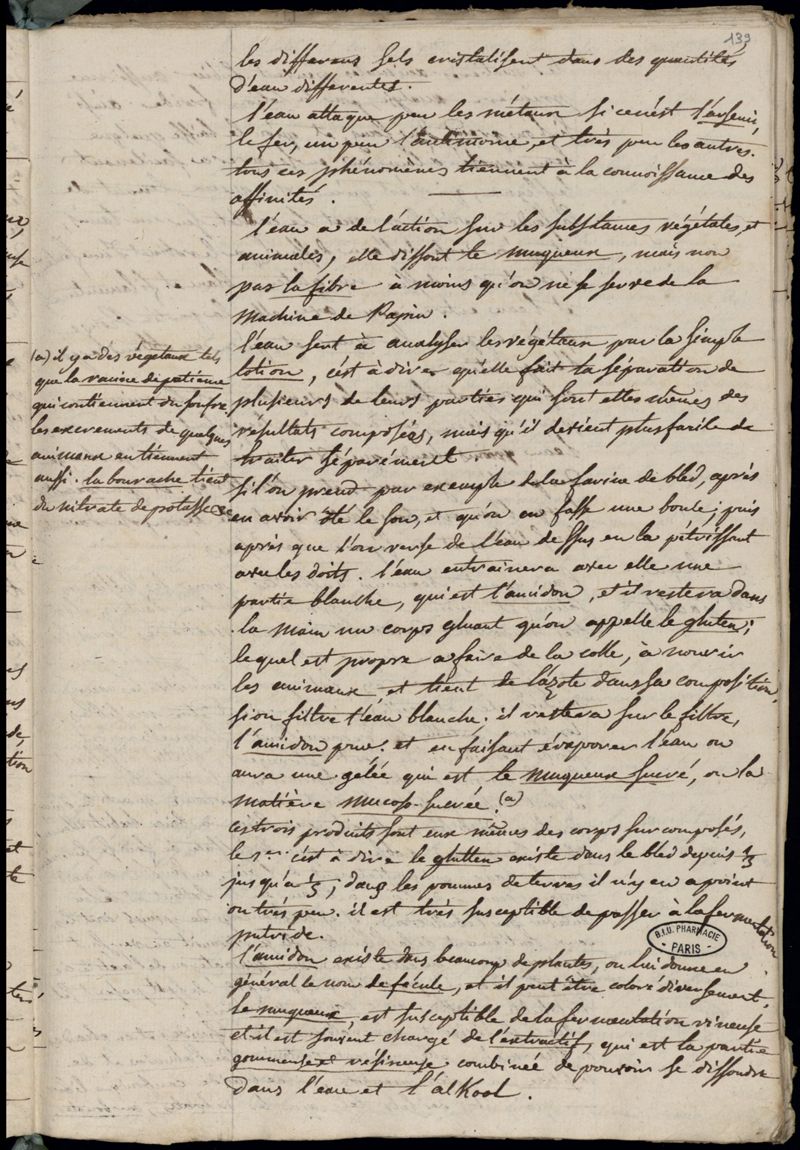 139
les differens sels cristalisent dans des quantités
d'eau differentes.
l'eau attaque peu les métaux si ce n'est l'arsenic,
le fer, un peu l'antimoine, et très peu les autres.
tous ces phénomènes tiennent à la connoissance des
affinités.
l'eau a de l'action sur les substances végétales, et
animales, elle dissout le muqueux, mais non
pas la fibre à moins qu'on ne se serve de la
machine de Papin.
l'eau sert à analyser les végétaux par la simple
lotion, c'est à dire qu'elle fait la séparation de
plusieurs de leurs parties qui sont elles mêmes des
résultats composées, mais qu'il devient plus facile de
traiter séparément
si l'on prend par exemple de la farine de bled, après
en avoir ôté le son, et qu'on en fasse une boule; puis
après que l'on verse de l'eau dessus en la pétrissant
avec les doits. l'eau entrainera avec elle une
partie blanche, qui est l'amidon, et il restera dans
la main un corps gluant qu'on appelle le gluten;
lequel est propre a faire de la colle, à nourir
les animaux, et tient de l'azote dans sa composition,
si on filtre l'eau blanche. il restera sur le filtre,
l'amidon pur. et en faisant évaporer l'eau on
aura une gelée qui est le muqueux sucré, ou la
matière mucoso-sucrée. (a)
ces trois produits sont eux mêmes des corps surcomposés,
le 1er c'est à dire le glutten existe dans le bled depuis
jusqu'a 1/5; dans les pommes de terres il n'y en a point
ou très peu. il est très susceptible de passer à la fermentation
putride.
l'amidon existe dans beaucoup de plantes, on lui donne en
général le nom de fécule, et il peut être coloré diversement.
le muqueux, est susceptible de la fermentation vineuse
et il est souvent chargé de l'extractif, qui est la partie
gommeuse et résineuse combinée de pouvoir se dissoudre
dans l'eau et l'alkool.
(a) il y a des végétaux tels
que la racine de patience
qui contiennent du soufre
les excrements de quelques
animaux en tiennent
aussi. la bourache tient
du nitrate de potasse
B.I.U. PHARMACIE
PARIS